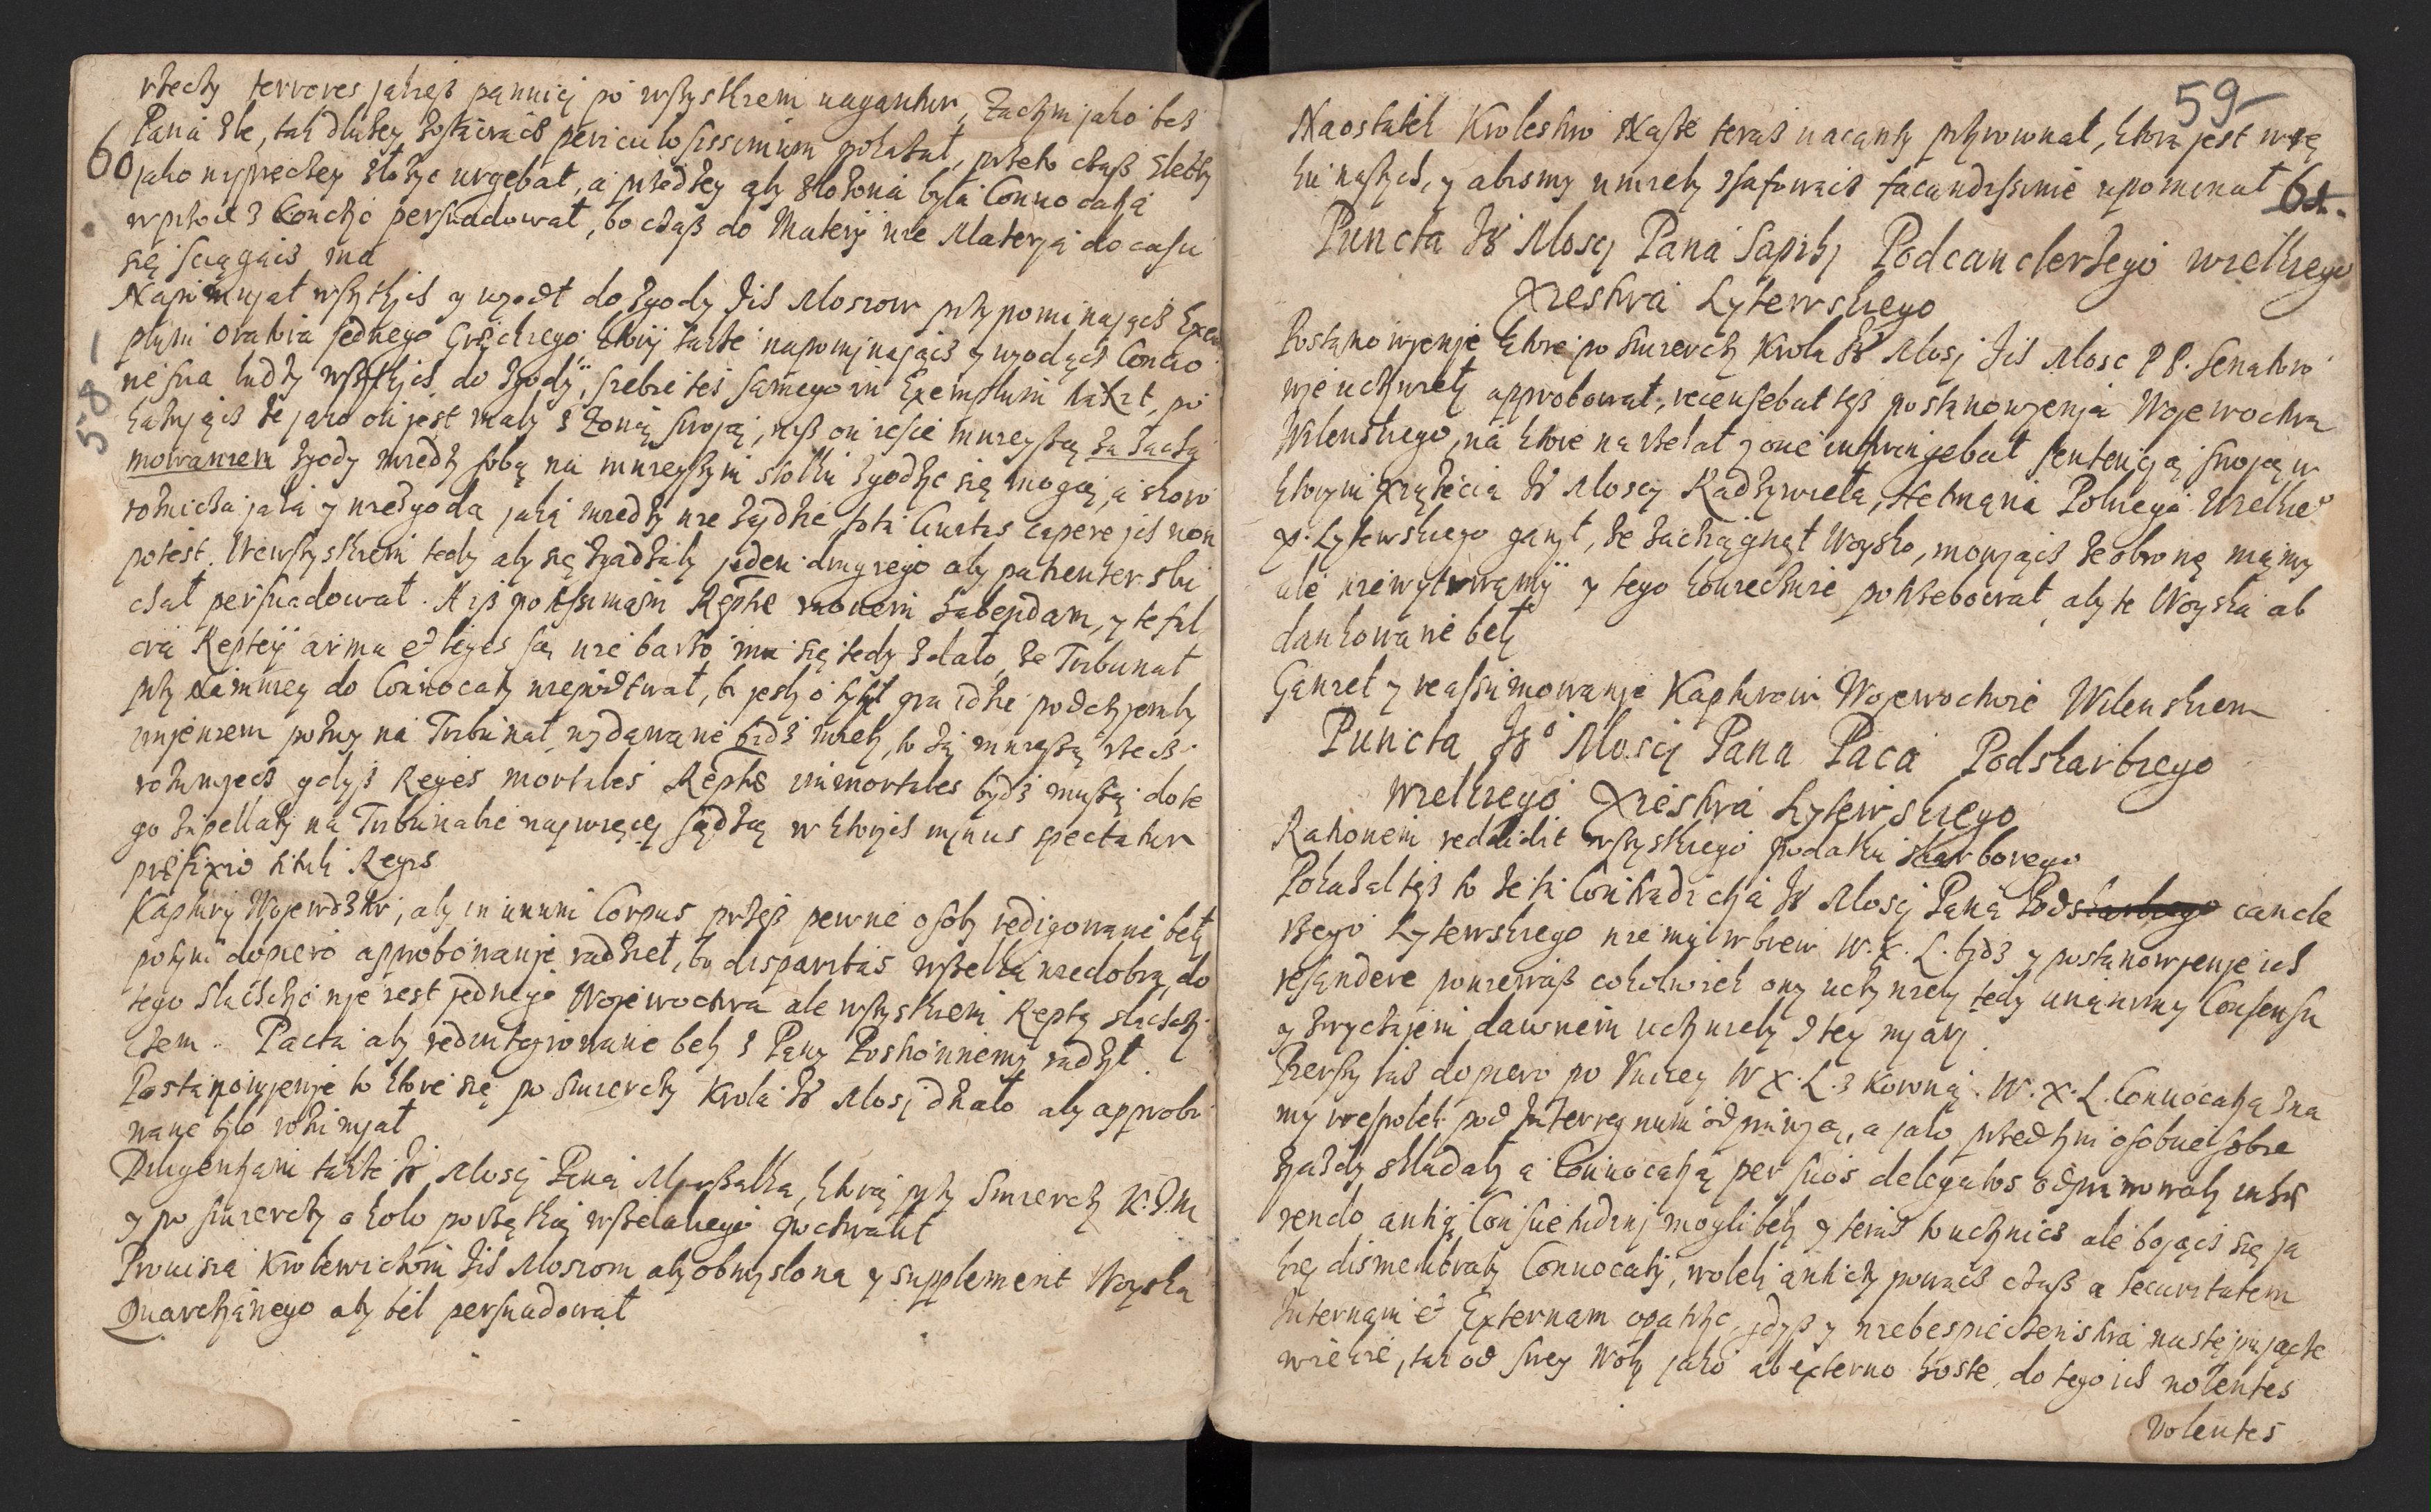 rzeczy terrores jakieś panuią po wszystkiem uagantur, Zaczym jako bes
60
Pana zle, tak dłużey zostawacz periculosissimum pokazał, przeto czaß Elekty
jako nyprędzey złożyc urgebat, a prędzey aby złożona była Conuocatia
w prętce skonczyc persuadował, bo czaß do Materij nie Materyą do casu
się sciągacz ma
Napominał wszytkich y wzodł do zgody Jch Mosciow przypominając Exem
58
plum oratora jednego Gręckiego ktory także napominając y wzodząc Concio
ne sua ludzy wszytkich do zgody, siebie też samego in Exemplum kładł, po
kazując że jako on jest mały z żoną swoją, nisz on jescie mnieyszą za zacho
mowaniem zgody miedzy sobą na mnieyszym stołku zgodzyc się mogą, a skoro
rożniczka jaka y niezgoda jaka miedzy nie zajdzie, tota Ciuitas capere jch non
potest. Wewszystkiem tedy aby się zgadzały jeden drugiego aby patienter słu
chał persuadował. Aiß potissimam Rptæ rationem habendam, y te ful
cra Reptey arma et leges są nie barzo mu się tedy zdało, że Tribunał
przy naimniey do Conuocaty niepodtwał, bo jeszcze
imjeniem pozwy na Tribunał wydawane bydz miely, to zą mnieyszą rzecz
rozumjecz gdyß Reges mortales Repte immortales bydz muszą do te
go Appellaty na Tribunalie najwięcey sądzą w ktorych mjnus spectatur
præfixio tituli Regis
Kaptury Wojewodztw, aby in unum Corpus przesß pewne osoby redigowane beły
potym dopiero approbowanje radzieł, bo disparitas wszelka niedobra, do
tego slachczyc nje jest jednego Wojewodztwa ale wszystkiem Repty slachczy
czem. Pacta aby redintegrowane beły z Pany Postronnemy radzył.
Postanowjenje to ktore się po smierczy Krola Jº Mosci dzało aby approbo
wane było rozumjał
Diligentjam także Jº Mosci Pana Marszałka, ktorą przy smierczy K.J.M
y po smierczy a koło porządku wszelakiego pochwalił
Prouisia Krolewiczom Jch Mosciom aby obmyslona y supplement Woyska
Quarczjanego aby beł persuadował
59
Naostatek Krolestwo Nasze teraz nacanty przyrownał, ktora jest w rę
ku naszych, y abismy umiely szafowacz facundissime upominał 61.
Puncta Jº Moscj Pana Sapihj Podcanclerzego wielkiego
Xiestwa Lytewskiego
Postanowjenje ktore po smierczy Krola Jº Mosj Jch Mosc PP. Senatoro
wje uchwiely approbował, recensebat też postanowjenja Wojewodztwa
Wilenskiego, na ktore narzekał y one infringebat sententią swoją w
ktorym Xiążecia Jº Moscj Radzywieła, Hetmana Polnego Wielkieº
X. Lytewskiego ganjł, że zaciągnął Woysko, mowjącz że obroną mąmy
ale niewytrwamÿ y tego koniecznie potrzebował, aby te Woyska ab
dankowane beły
Ganieł y reassumowanje Kapturow Wojewodztwie Wilenskiem
Puncta Jº Mosci Pana Paca Podskarbiego
wielkiego Xiestwa Lytewskiego
Rationem reddidit wszystkiego podatku skarbowego
Pokazał też to że ta Contradictja Jº Moscj Pana Podskarbiego cancle
rzego Lytewskiego nie my wbrew W.X.L. bydz y postanowjenje ich
rescindere ponieważ cokolwiek ony uczyniely tedy unanimi Consensu
y zwyczajem dawnem uczyniely z tey mjary.
Pierszy raz dopiero po Vniey W X. L. z Koroną. W.X.L. Conuocatją zna
my wespolek pod Interregnum odprawją, a jako przedtym osobne sobie
zjazdy składały a Conuocatją per suos delegatos odprawowały inhæ
rendo antiquæ Consuetudinj mogli beły y teraz to uczynicz ale bojącz się ja
kiej dismembraty Conuocaty, woleli antiquitj powacz czaß a securitatem
Internam et Externam opatrzyc, gdyß y niebespieczenstwa następujące
wiedzie, tak od swey Woly jako ab externo hoste, do tego ich nolentes
Volentes